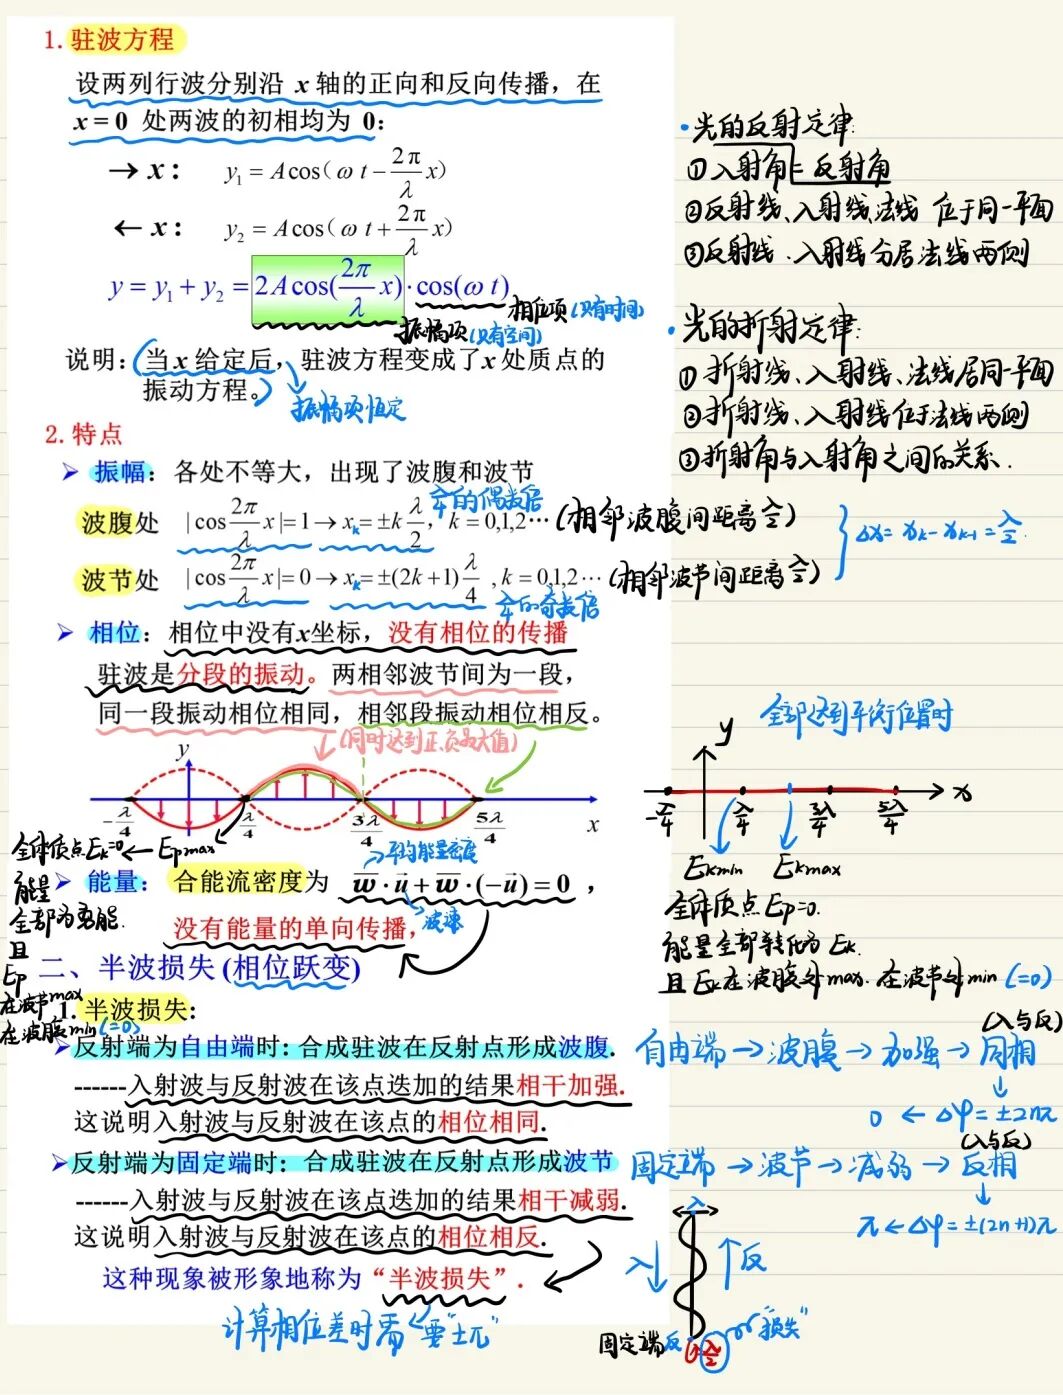 1. 驻波方程
设两列行波分别沿 x 轴的正向和反向传播，在
x = 0 处两波的初相均为 0:
→ x: y₁ = A cos( ω t - 2π/λ x)
← x: y₂ = A cos( ω t + 2π/λ x)
y = y₁ + y₂ = 2A cos(2π/λ x) · cos(ω t)
相位项(只有时间)
振幅项(只有空间)
说明: 当 x 给定后，驻波方程变成了 x 处质点的
振动方程。
振幅项恒定
2. 特点
➢ 振幅：各处不等大，出现了波腹和波节
λ/4的偶数倍
波腹处 |cos 2π/λ x| = 1 → xₖ = ±k λ/2, k = 0,1,2… (相邻波腹间距离λ/2)
波节处 |cos 2π/λ x| = 0 → xₖ = ±(2k+1) λ/4, k = 0,1,2… (相邻波节间距离λ/2)
λ/4的奇数倍
Δx = xₖ - xₖ₋₁ = λ/2.
➢ 相位：相位中没有x坐标，没有相位的传播
驻波是分段的振动。两相邻波节间为一段，
同一段振动相位相同，相邻段振动相位相反。
(同时达到正、负最大值)
y
-λ/4 λ/4 3λ/4 5λ/4 x
全体质点Eₖ=0 ← Epmax
能量
全部为势能.
且
Ep
在波节max
在波腹min (=0)
平均能量密度
➢ 能量： 合能流密度为 w̅·u⃗ + w̅·(-u⃗) = 0 ，
波速
没有能量的单向传播，
二、半波损失 (相位跃变)
1. 半波损失:
➢反射端为自由端时: 合成驻波在反射点形成波腹.
------入射波与反射波在该点迭加的结果相干加强.
这说明入射波与反射波在该点的相位相同.
➢反射端为固定端时: 合成驻波在反射点形成波节
------入射波与反射波在该点迭加的结果相干减弱.
这说明入射波与反射波在该点的相位相反.
这种现象被形象地称为“半波损失”.
计算相位差时需要“±π”
•光的反射定律:
①入射角=反射角
②反射线、入射线、法线 位于同一平面
③反射线、入射线分居法线两侧
•光的折射定律:
①折射线、入射线、法线居同一平面
②折射线、入射线位于法线两侧
③折射角与入射角之间的关系.
全部达到平衡位置时
y
-π/4 λ/4 3λ/4 5λ/4 x
Eₖmin Eₖmax
全体质点Ep=0.
能量全部转化为Eₖ.
且Eₖ在波腹处max. 在波节处min (=0)
(入与反)
自由端 → 波腹 → 加强 → 同相
0 ← Δφ = ±2nπ
(入与反)
固定端 → 波节 → 减弱 → 反相
π ← Δφ = ±(2n+1)π
入
入↓ ↑反
固定端反 λ/2 “损失”